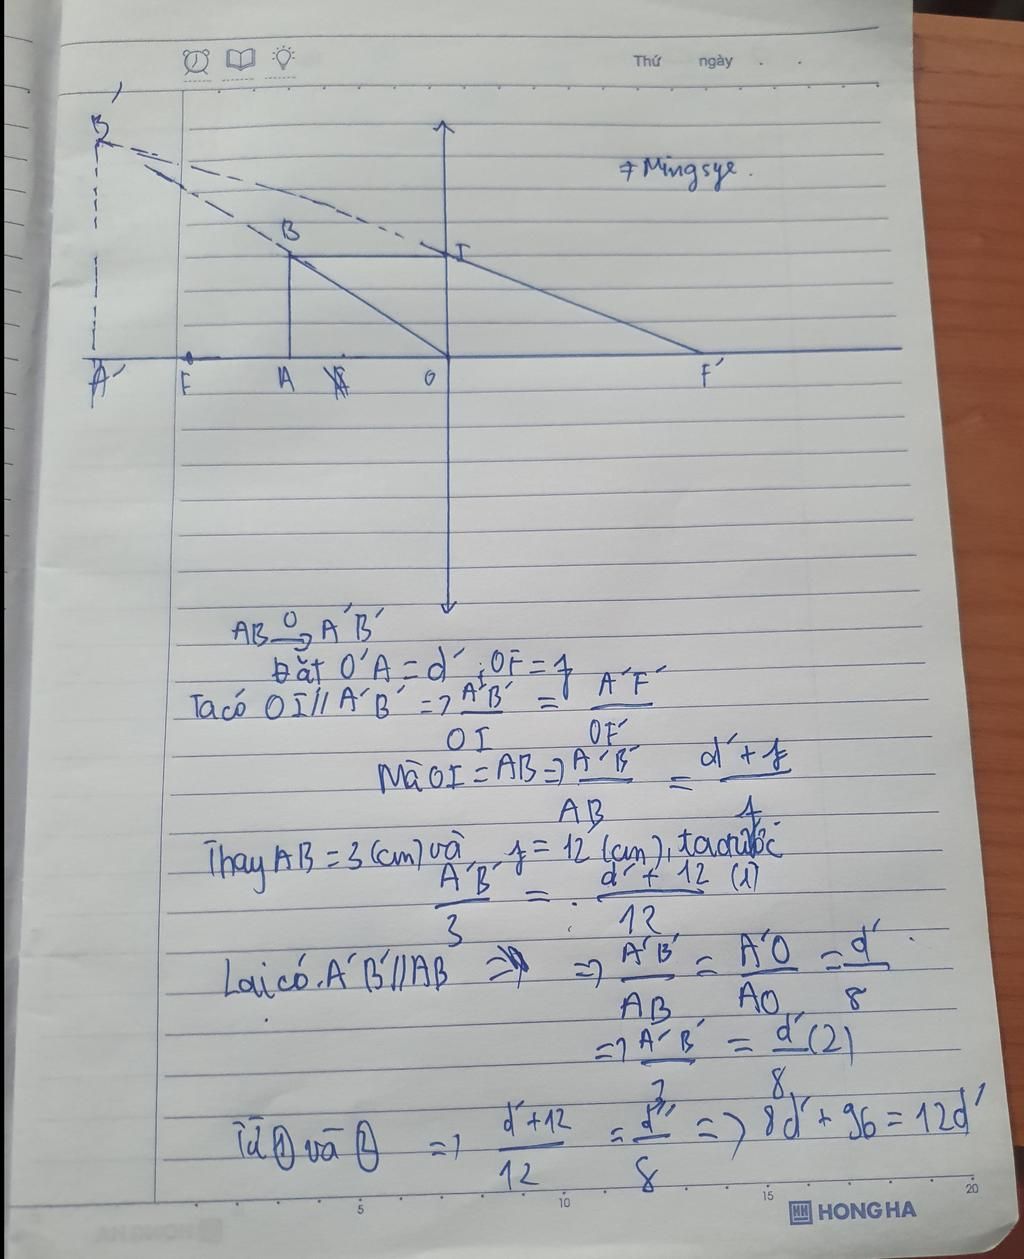 Thứ ngày . .
B'
#Mingsye.
B
I
A' F A O F'
AB →O A'B'
Đặt O'A = d' ; OF = f
Ta có OI // A'B' => A'B'/OI = A'F'/OF'
Mà OI = AB => A'B'/AB = d' + f/f
Thay AB = 3 (cm) và f = 12 (cm), ta được
A'B'/3 = d' + 12/12 (1)
Lại có A'B' // AB => A'B'/AB = A'O/AO = d'/8
=> A'B'/3 = d'/8 (2)
Từ ① và ② => d' + 12/12 = d'/8 => 8d' + 96 = 12d'
5 10 15 20
HONG HA